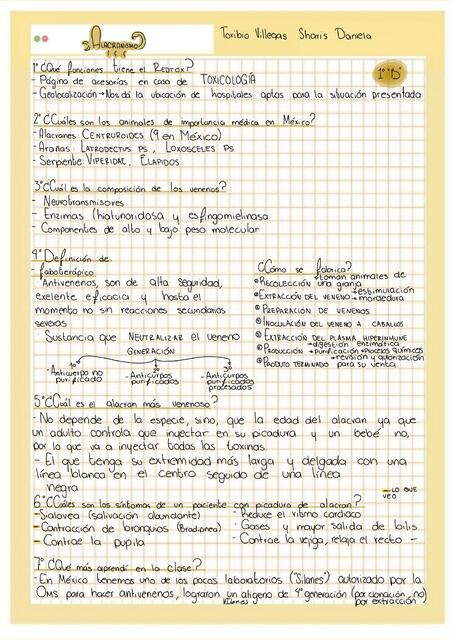 Toribio Villegas Sharis Daniela
¿ALACRANISMO?
1°"D"
1° ¿Qué funciones tiene el REDTOX?
- Página de acesorías en caso de TOXICOLOGÍA
- Geolocalización → Nos dá la ubicación de hospitales aptos para la situación presentada
2° ¿Cuáles son los animales de importancia médica en México?
- Alacranes: CENTRUROIDES (9 en México)
- Arañas: LATRODECTUS PS, LOXOSCELES PS
- Serpente: VIPERIDAE, ELAPIDOS
3° ¿Cuál es la composición de los venenos?
- Neurotransmisores
- Enzimas (hialunoridasa y esfingomielinasa
- Componentes de alto y bajo peso molecular
4° Definición de:
- faboterápico
Antivenenos, son de alta seguridad,
exelente eficacia y hasta el
momento no sin reacciones secundarias
severas
Sustancia que NEUTRALIZAR el veneno
GENERACIÓN
1°
- Anticuerpo no
purificado
2°
- Anticuerpos
purificados
3°
- Anticuerpos
purificados
procesados
¿Cómo se fabrica?
RECOLECCIÓN → toman animales de
una granja
EXTRACCIÓN DEL VENENO → estimulación
→ mordedura
PREPARACIÓN DE VENENOS
INOCULACIÓN DEL VENENO A CABALLOS
EXTRACCIÓN DEL PLASMA HIPERINMUNE
PRODUCCIÓN → digestión enzimática
→ purificación → Procesos químicos
PRODUTO TERMINADO → revisión y autorización
para su venta
5° ¿Cuál es el alacran más venenoso?
- No depende de la especie, sino, que la edad del alacran ya que
un adulto controla que injectar en su picadura y un bebé no,
por lo que va a injectar todas las toxinas
- El que tenga su extremidad más larga y delgada con una
línea blanca en el centro seguido de una línea
negra
- LO QUE
VEO
6° ¿Cuáles son los síntomas de un paciente con picadura de alacran?
- Sialorea (salivación abundante)
- Contracción de bronquios (Bradipnea)
- Contrae la pupila
- Reduce el ritmo cardiaco
- Gases y mayor salida de bilis
- Contrae la vejiga, relaja el recto -
7° ¿Qué más aprendí en la clase?
- En México tenemos uno de los pocos laboratorios ("Silanes") autorizado por la
OMS para hacer antivenenos, lograron un
de 4° generación (por clonación, no
por extracción)